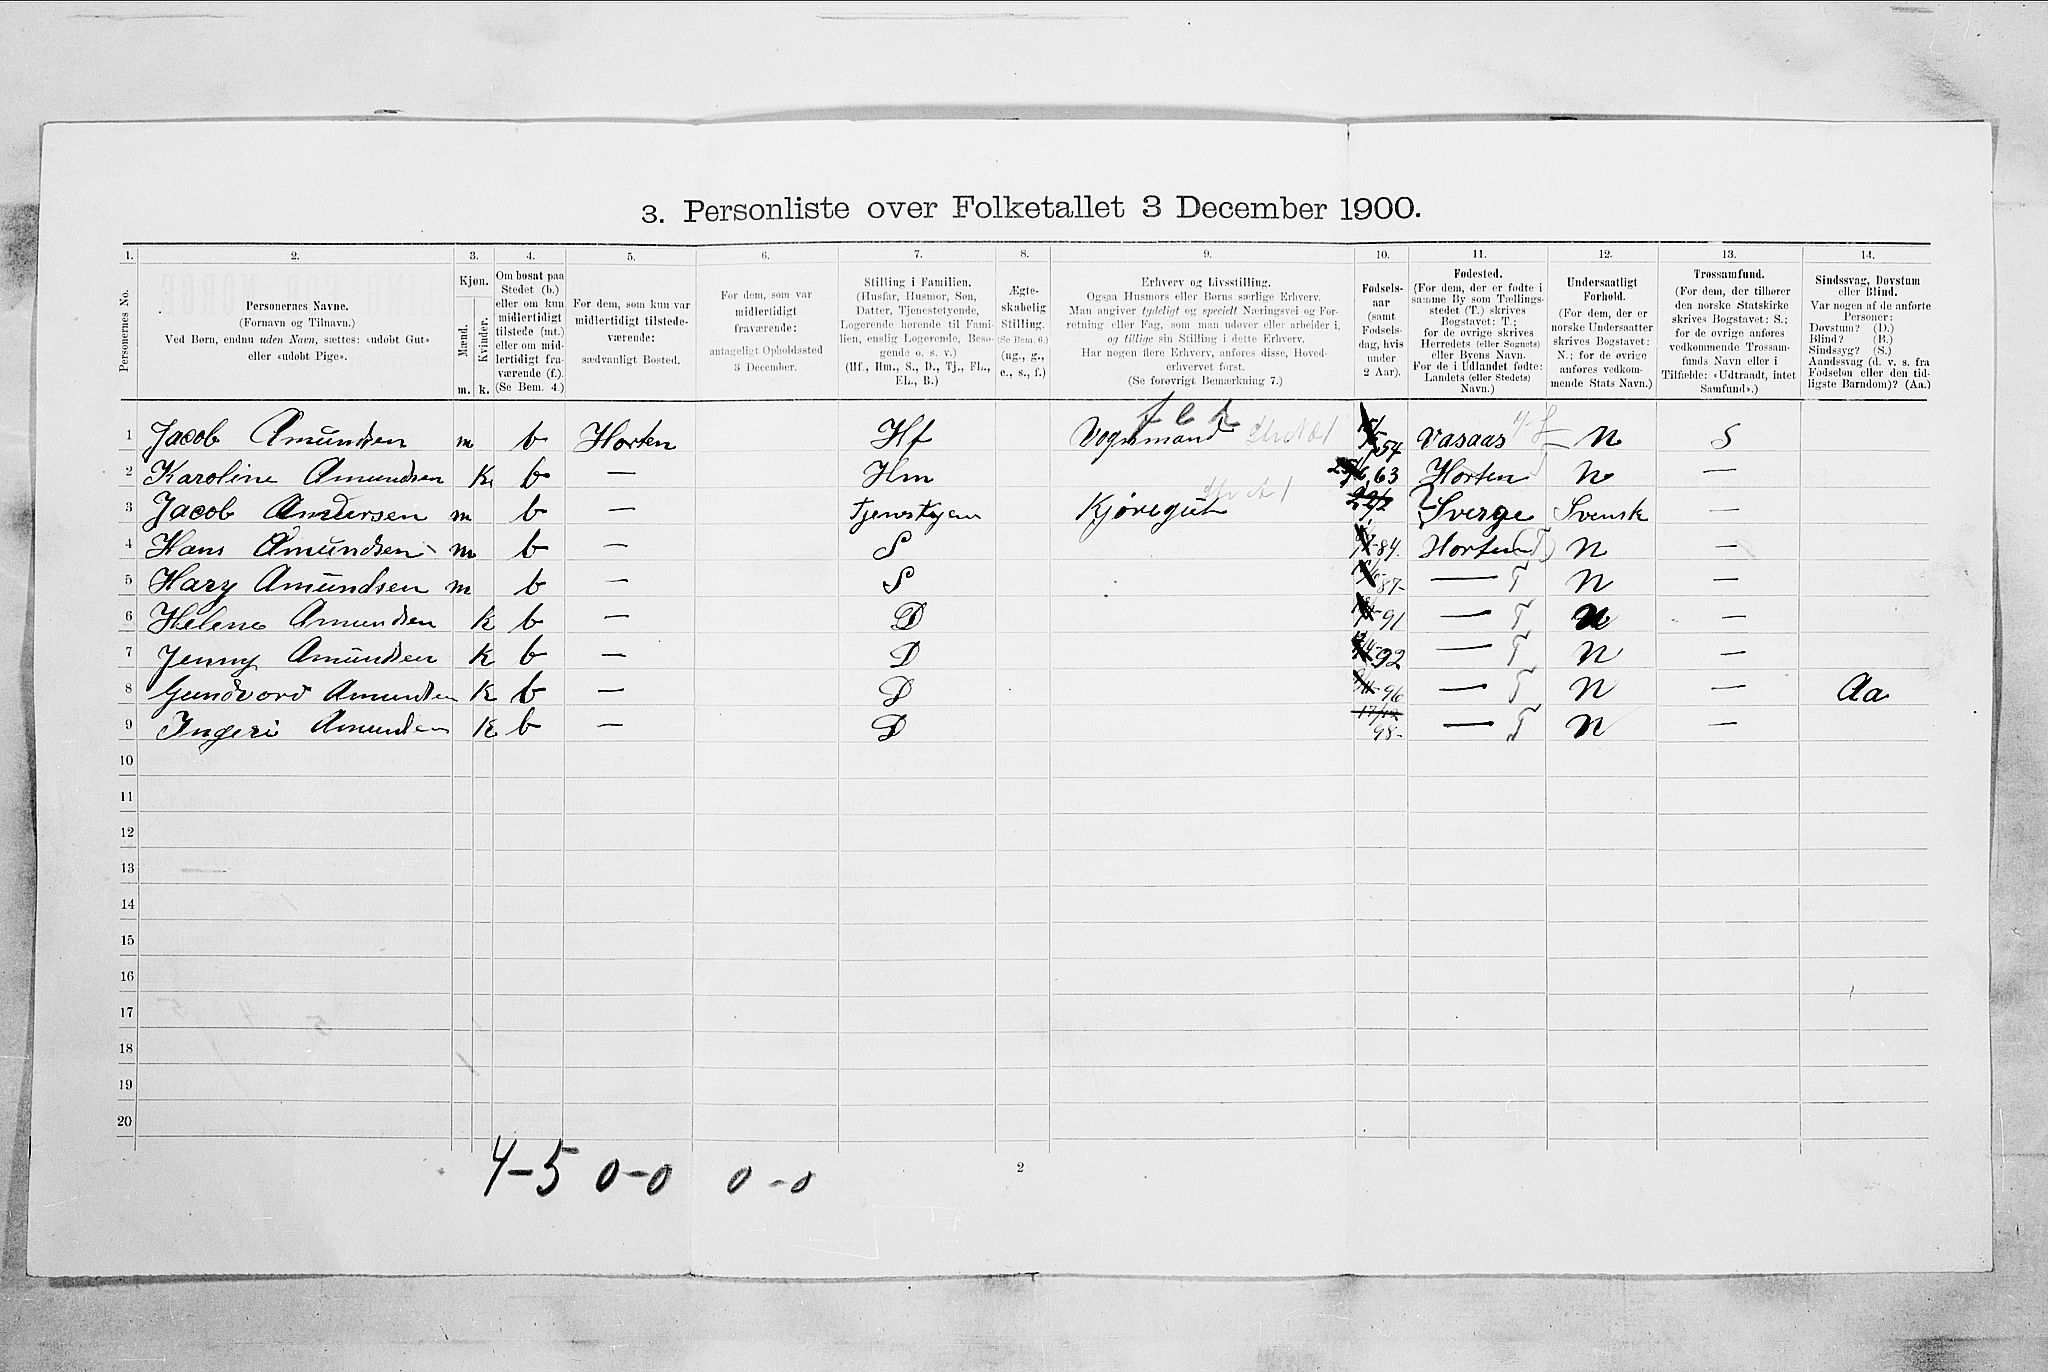 3. Personliste over Folketallet 3 December 1900.
1. 2. 3. 4. 5. 6. 7. 8. 9. 10. 11. 12. 13. 14.
Personernes No.
Personernes Navne.
(Fornavn og Tilnavn.)
Ved Børn, endnu uden Navn, sættes: «udobt Gut»
eller «udobt Pige».
Kjøn.
Mænd.
Kvinder.
m. k.
Om bosat paa
Stedet (b.)
eller om kun
midlertidigt
tilstede (mt.)
eller om mid-
lertidigt fra-
værende (f.).
(Se Bem. 4.)
For dem, som kun var
midlertidigt tilstede-
værende:
sædvanligt Bosted.
For dem, som var
midlertidigt
fraværende:
antageligt Opholdssted
3 December.
Stilling i Familien.
(Husfar, Husmor, Søn,
Datter, Tjenestetyende,
Logerende hørende til Fami-
lien, enslig Logerende, Besø-
gende o. s. v.)
(Hf., Hm., S., D., Tj., FL.,
EL., B.)
Ægte-
skabelig
Stilling.
(Se Bem. 6.)
(ug., g.,
e., s., f.)
Erhverv og Livsstilling.
Ogsaa Husmors eller Børns særlige Erhverv.
Man angiver tydeligt og specielt Næringsvei og For-
retning eller Fag, som man udøver eller arbeider i,
og tillige sin Stilling i dette Erhverv.
Har nogen flere Erhverv, anføres disse, Hoved-
erhvervet først.
(Se forøvrigt Bemærkning 7.)
Fødsels-
aar
(samt
Fødsels-
dag, hvis
under
2 Aar).
Fødested.
(For dem, der er fødte i
samme By som Tællings-
stedet (T.) skrives
Bogstavet: T.;
for de øvrige skrives
Herredets (eller Sognets)
eller Byens Navn.
For de i Udlandet fødte:
Landets (eller Stedets)
Navn.)
Undersaatligt
Forhold.
(For dem, der er
norske Undersaatter
skrives Bogstavet:
N.; for de øvrige
anføres vedkom-
mende Stats Navn.)
Trossamfund.
(For dem, der tilhører
den norske Statskirke
skrives Bogstavet: S.;
for de øvrige anføres
vedkommende Trossam-
funds Navn eller i
Tilfælde: «Udtraadt, intet
Samfund».)
Sindssvag, Døvstum
eller Blind.
Var nogen af de anførte
Personer:
Døvstum? (D.)
Blind? (B.)
Sindssyg? (S.)
Aandssvag (d. v. s. fra
Fødselen eller den tid-
ligste Barndom)? (Aa.)
1 Jacob Amundsen m b Horten Hf Vognmand 54 Vasaas N S
2 Karoline Amundsen K b — Hm 63 Horten N —
3 Jacob Andersen m b — Kjøregut Sverge Svensk —
4 Hans Amundsen m b — S 84. Horten (T) N —
5 Hary Amundsen m b — S 87- — T N —
6 Helene Amundsen K b — D 91 — T N —
7 Jenny Amundsen K b — D 92 — T N —
8 Gundvord Amundsen K b — D 96 — T N — Aa
9 Ingeri Amundsen K b — D 17/12 98- — T N —
10
11
12
13
14
15
16
17
18
19
20
4-5 0-0 0-0
2